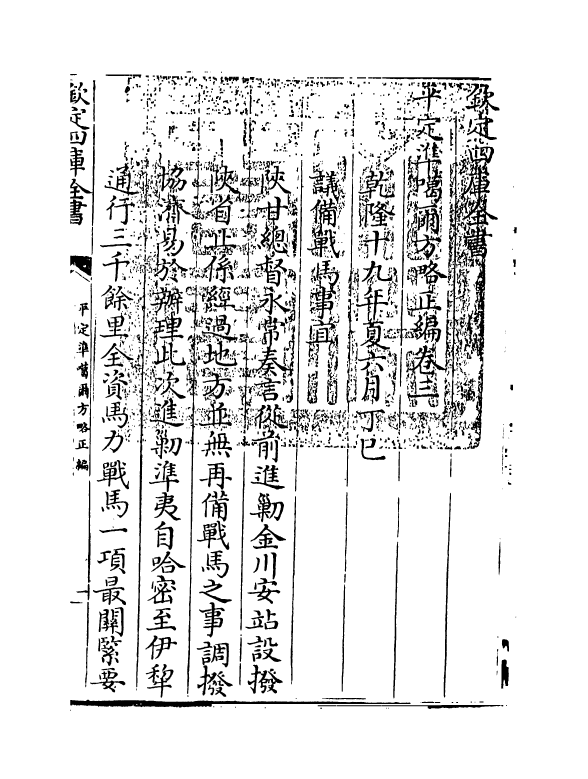 欽定四庫全書
平定準噶爾方略正編卷三
乾隆十九年夏六月丁巳
議備戰馬事宜
陝甘總督永常奏言從前進勦金川安站設撥
陝省止係經過地方並無再備戰馬之事調撥
協濟易於辦理此次進勦準夷自哈密至伊犂
通行三千餘里全資馬力戰馬一項最關緊要
欽定四庫全書
平定準噶爾方略正編